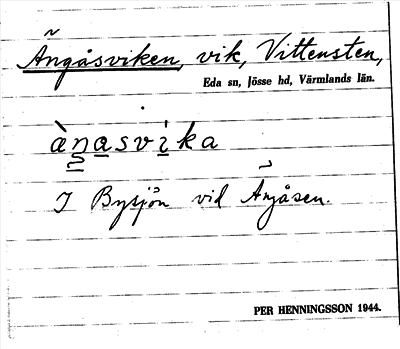 Ängåsviken, vik, Vittensten,
Eda sn, Jösse hd, Värmlands län.
àŋa̱svi̱ka
I Bysjön vid Ängåsen.
PER HENNINGSSON 1944.